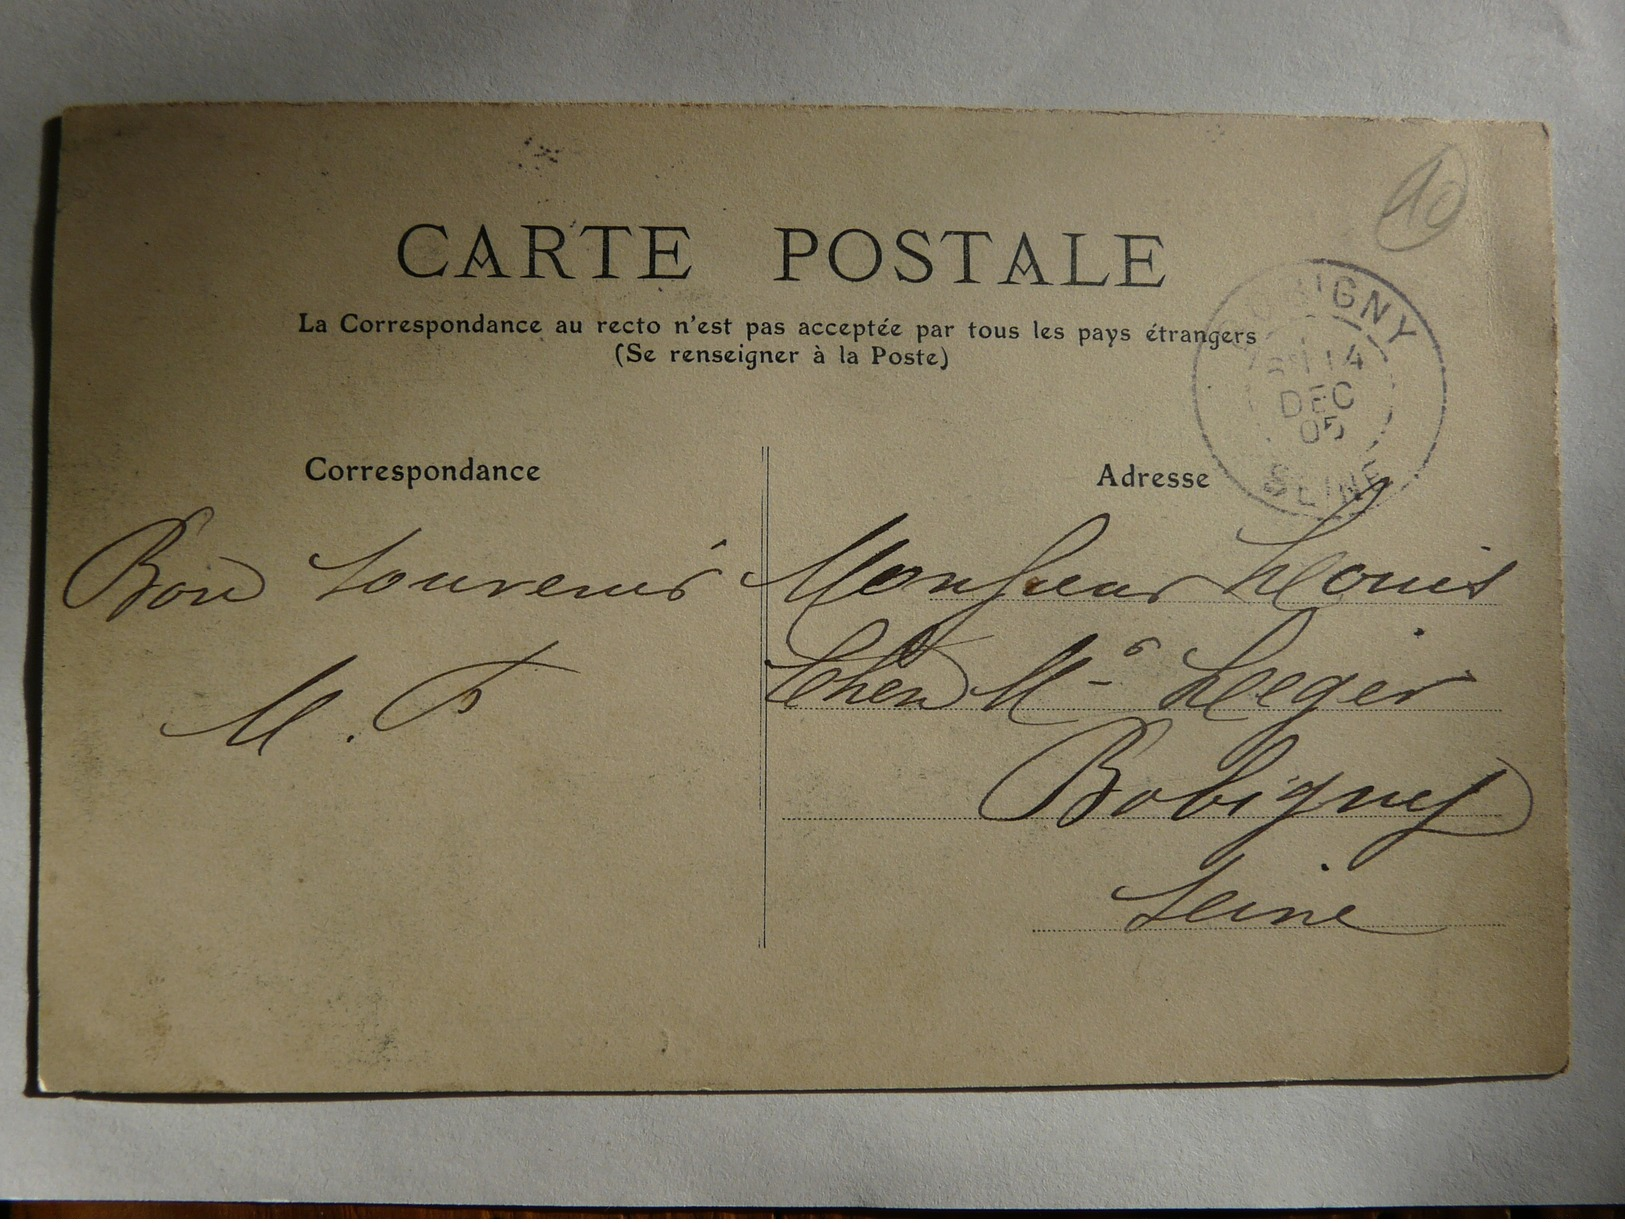 10
CARTE POSTALE
La Correspondance au recto n'est pas acceptée par tous les pays étrangers
(Se renseigner à la Poste)
BOBIGNY
14
DEC
05
SEINE
Correspondance
Bon Souvenir
M. F
Adresse
Monsieur Louis
Chez Mr Leger
Bobigny
Seine